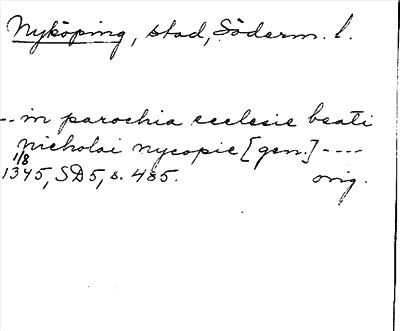 Nyköping, stad, Söderm. l.
-- in parochia ecclesie beati
Nicholai nycopie [gen.] ----
1/8
1345, SD5, s. 485. orig.